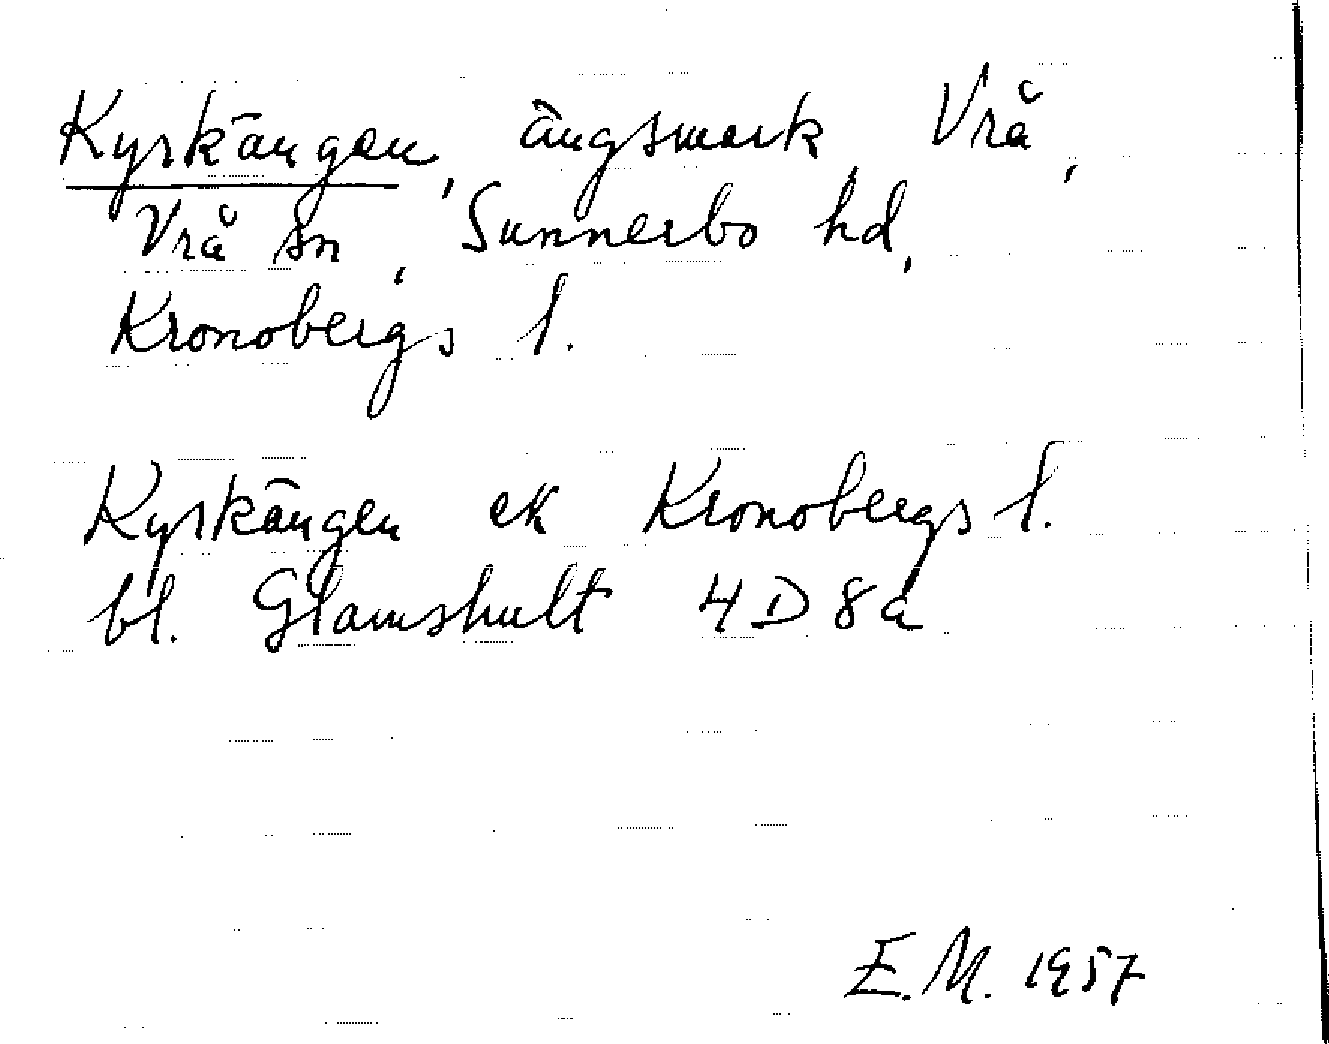 Kyrkängen, ängsmark, Vrå,
Vrå sn, Sunnerbo hd,
Kronobergs l.
Kyrkängen ek Kronobergs l.
bl. Glamshult 4D8a
E.M. 1957